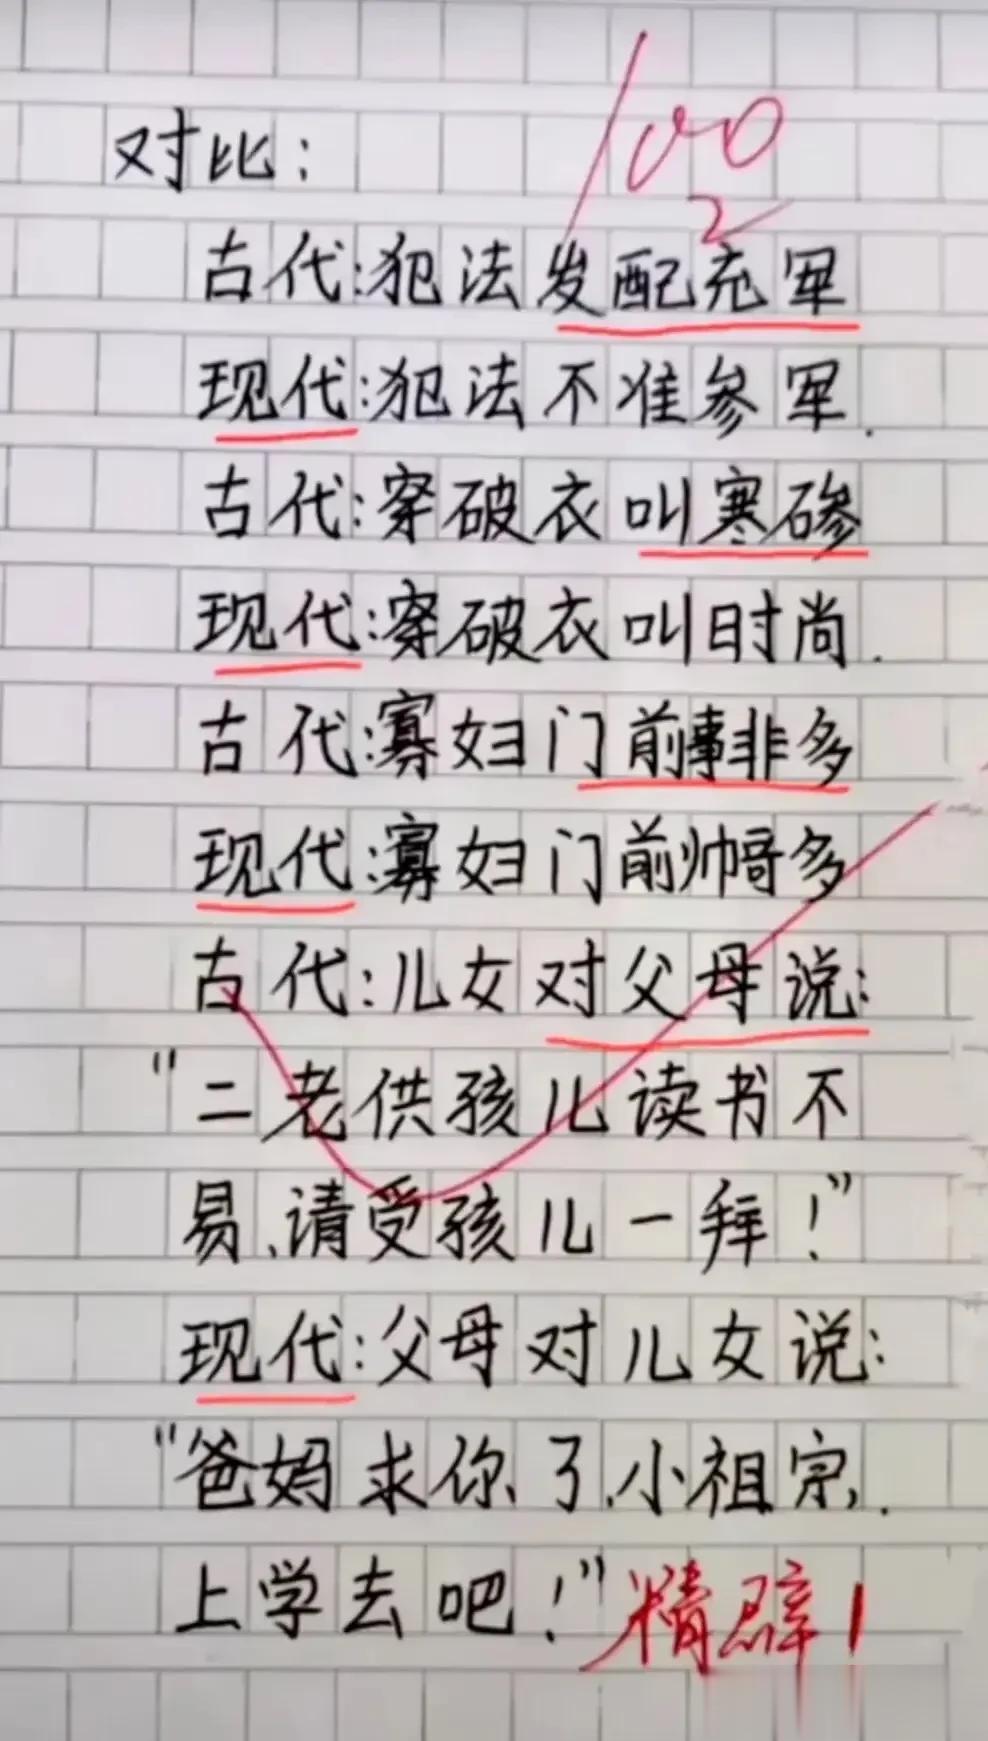 100
对比：
古代：犯法发配充军
现代：犯法不准参军.
古代：穿破衣叫寒碜
现代：穿破衣叫时尚.
古代：寡妇门前事非多
现代：寡妇门前帅哥多
古代：儿女对父母说：
“二老供孩儿读书不
易、请受孩儿一拜！”
现代：父母对儿女说：
“爸妈求你了、小祖宗，.
上学去吧！”
精辟！